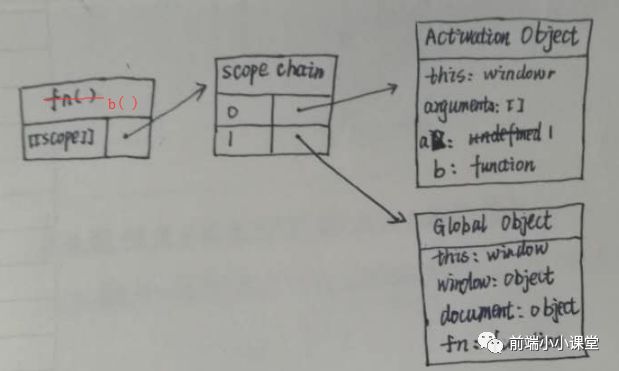 fn() b()
[[scope]]
scope chain
0
1
Activation Object
this: window
arguments: []
a: undefined 1
b: function
Global Object
this: window
window: object
document: object
fn:
前端小小课堂